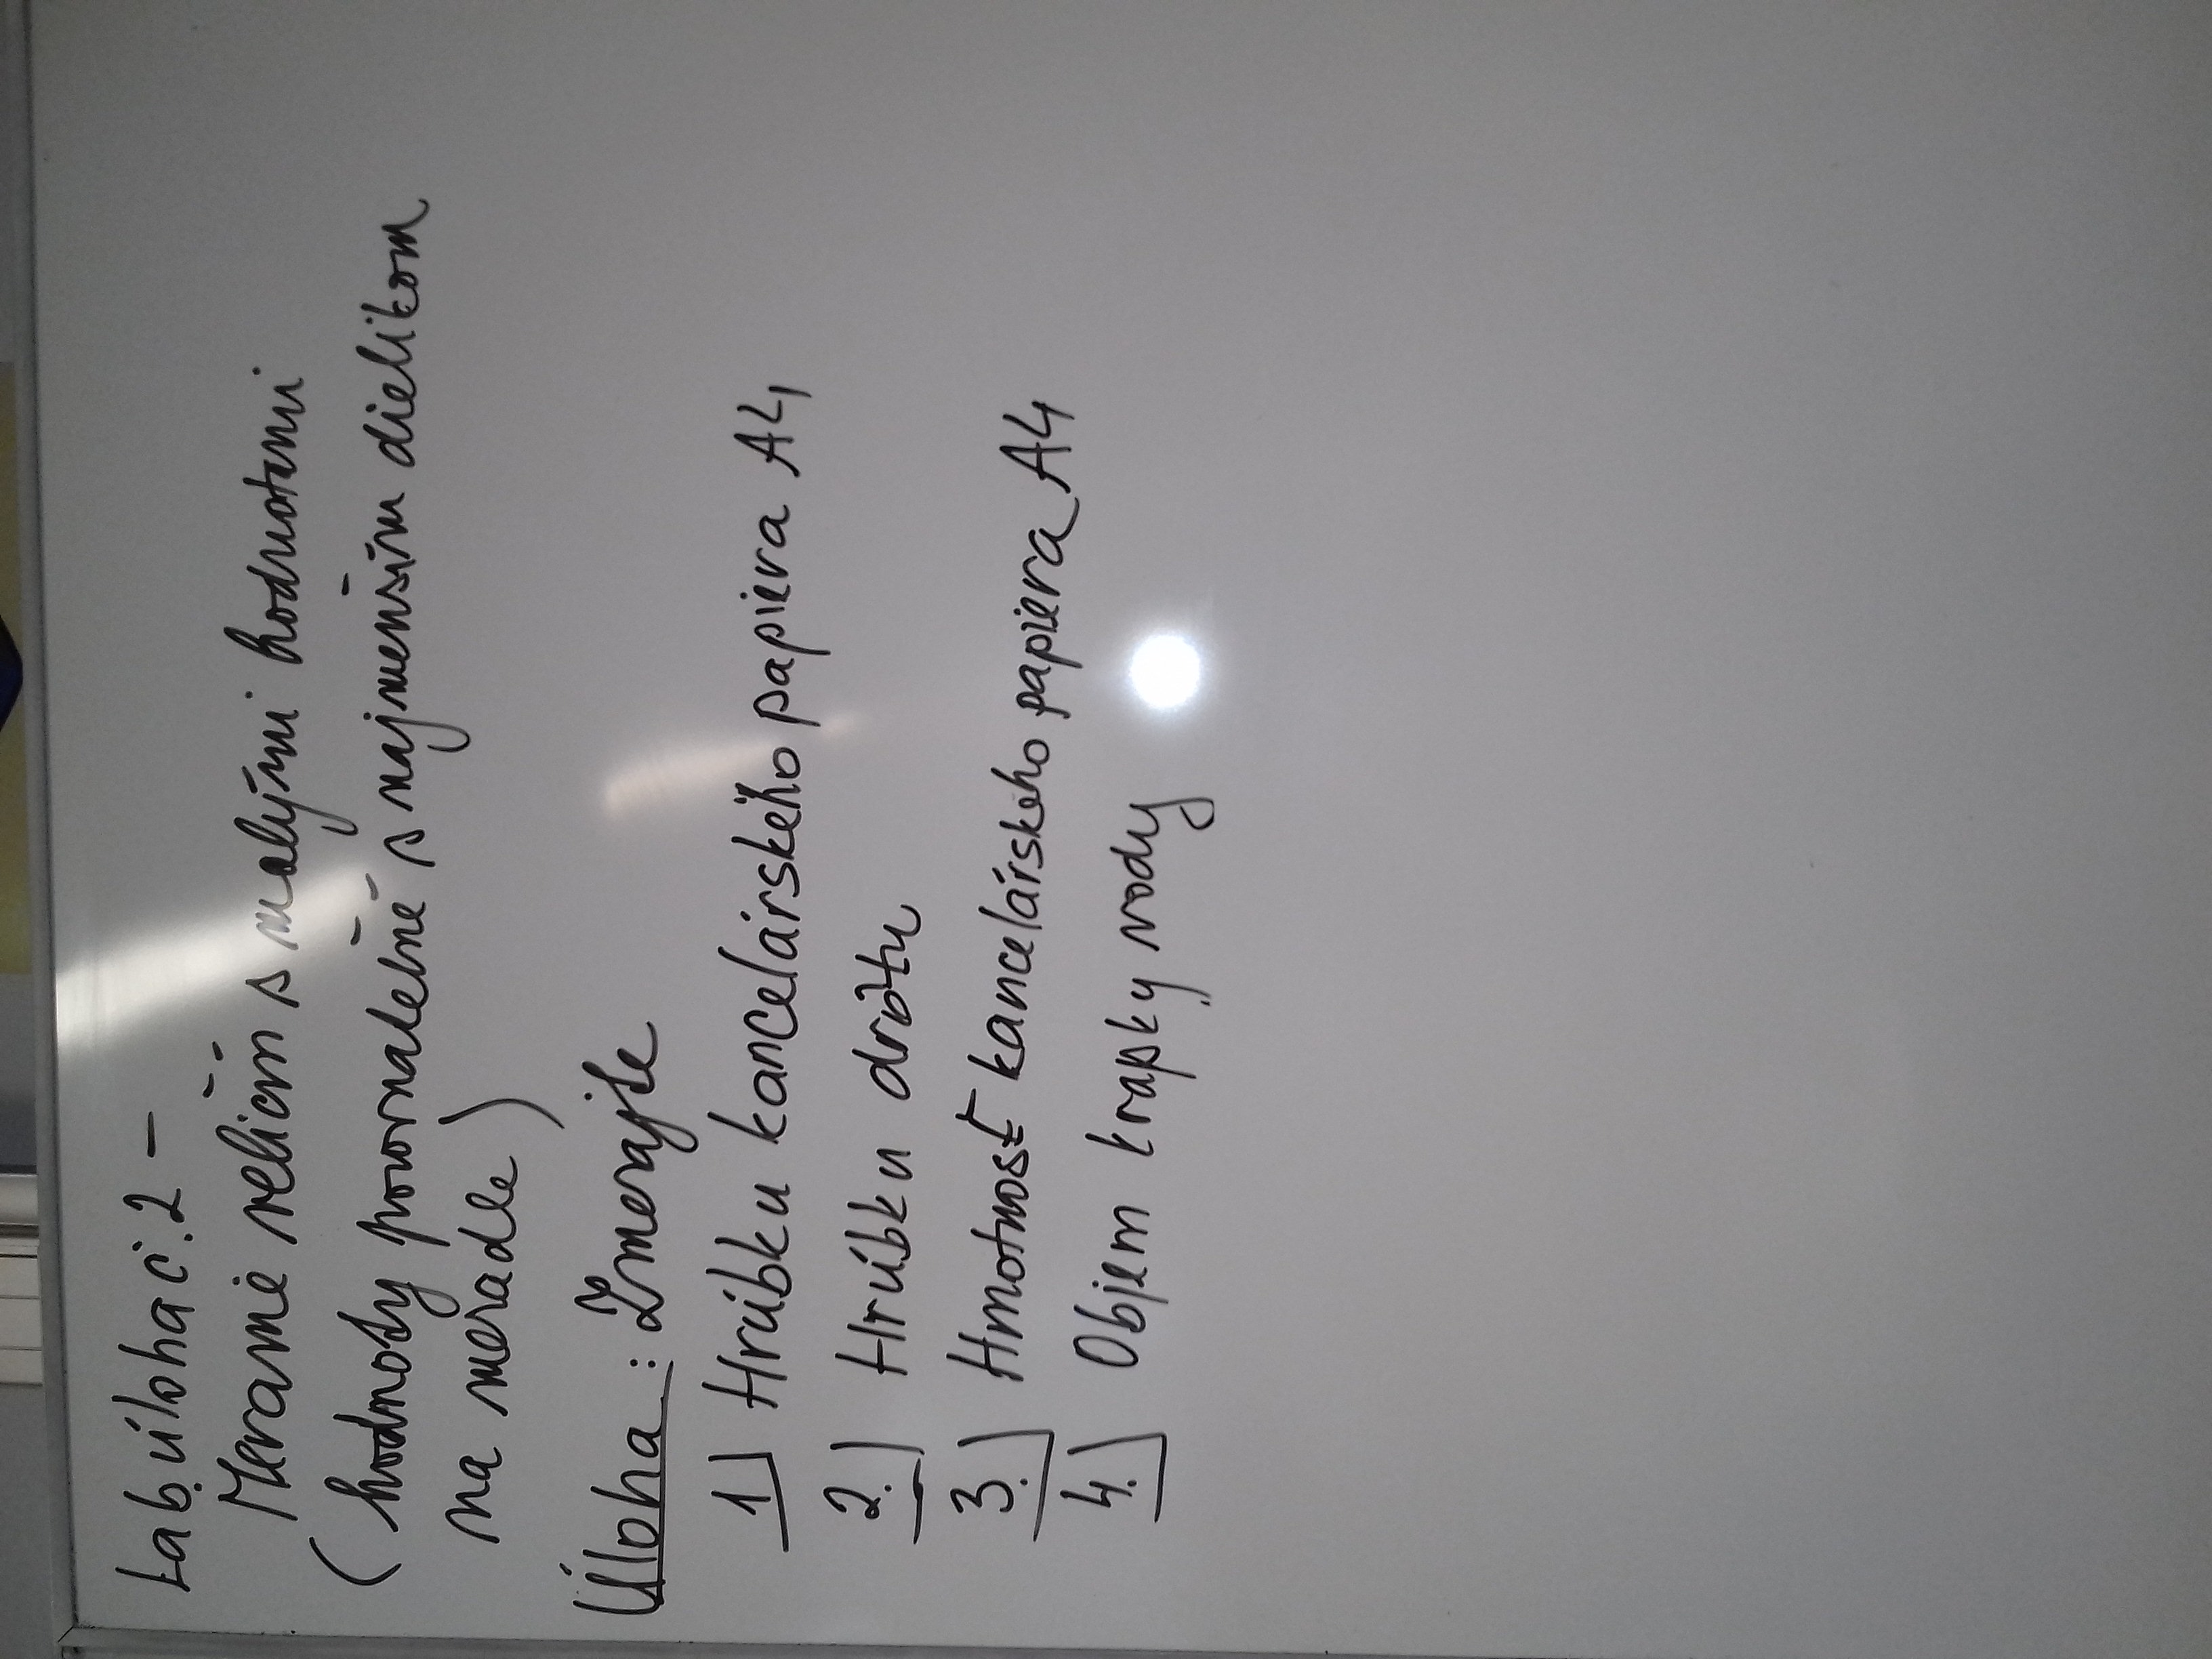 Lab. úloha č. 2 –
Meranie veličín s malými hodnotami
( hodnoty porovnateľné s najmenším dielikom
na meradle )
Úloha : Zmerajte
1) Hrúbku kancelárskeho papiera A4
2.) Hrúbku drôtu
3.) Hmotnosť kancelárskeho papiera A4
4.) Objem kvapky vody